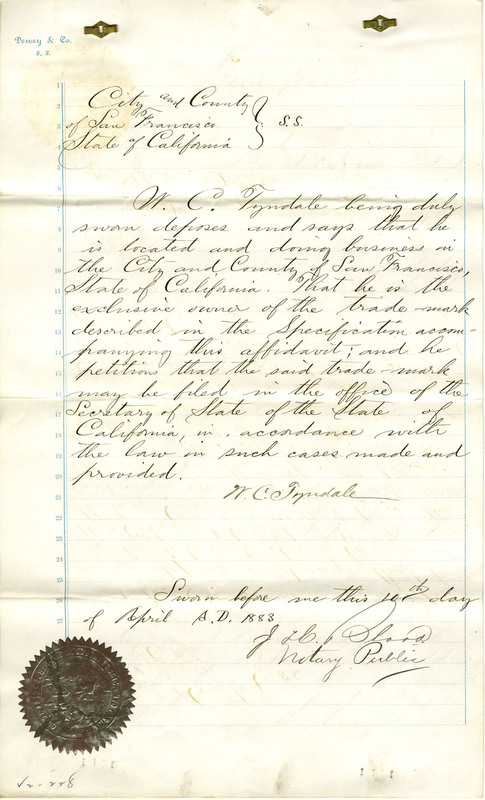 Dewey & Co.
S. F.
City and County
of San Francisco
State of California
S.S.
W. C. Tyndale being duly
sworn deposes and says that he
is located and doing business in
the City and County of San Francisco,
State of California. That he is the
exclusive owner of the trade-mark
described in the Specification accom-
panying this affidavit; and he
petitions that the said trade-mark
may be filed in the office of the
Secretary of State of the State of
California, in accordance with
the law in such cases made and
provided.
W. C. Tyndale
Sworn before me this 10th day
of April A.D. 1883
Notary Public